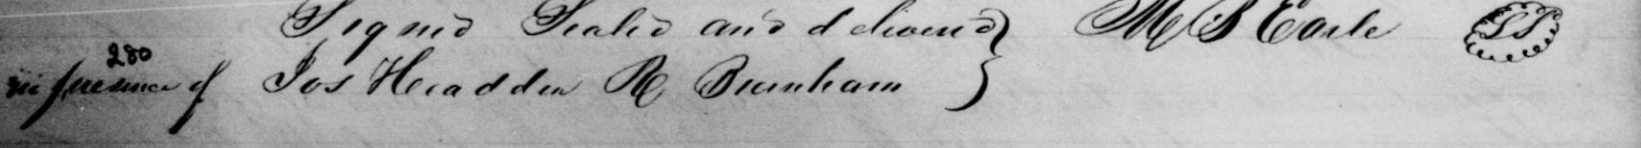 Signed Sealed and delivered } M S Earle LS
280
in presence of Jos Headden R Burnham }